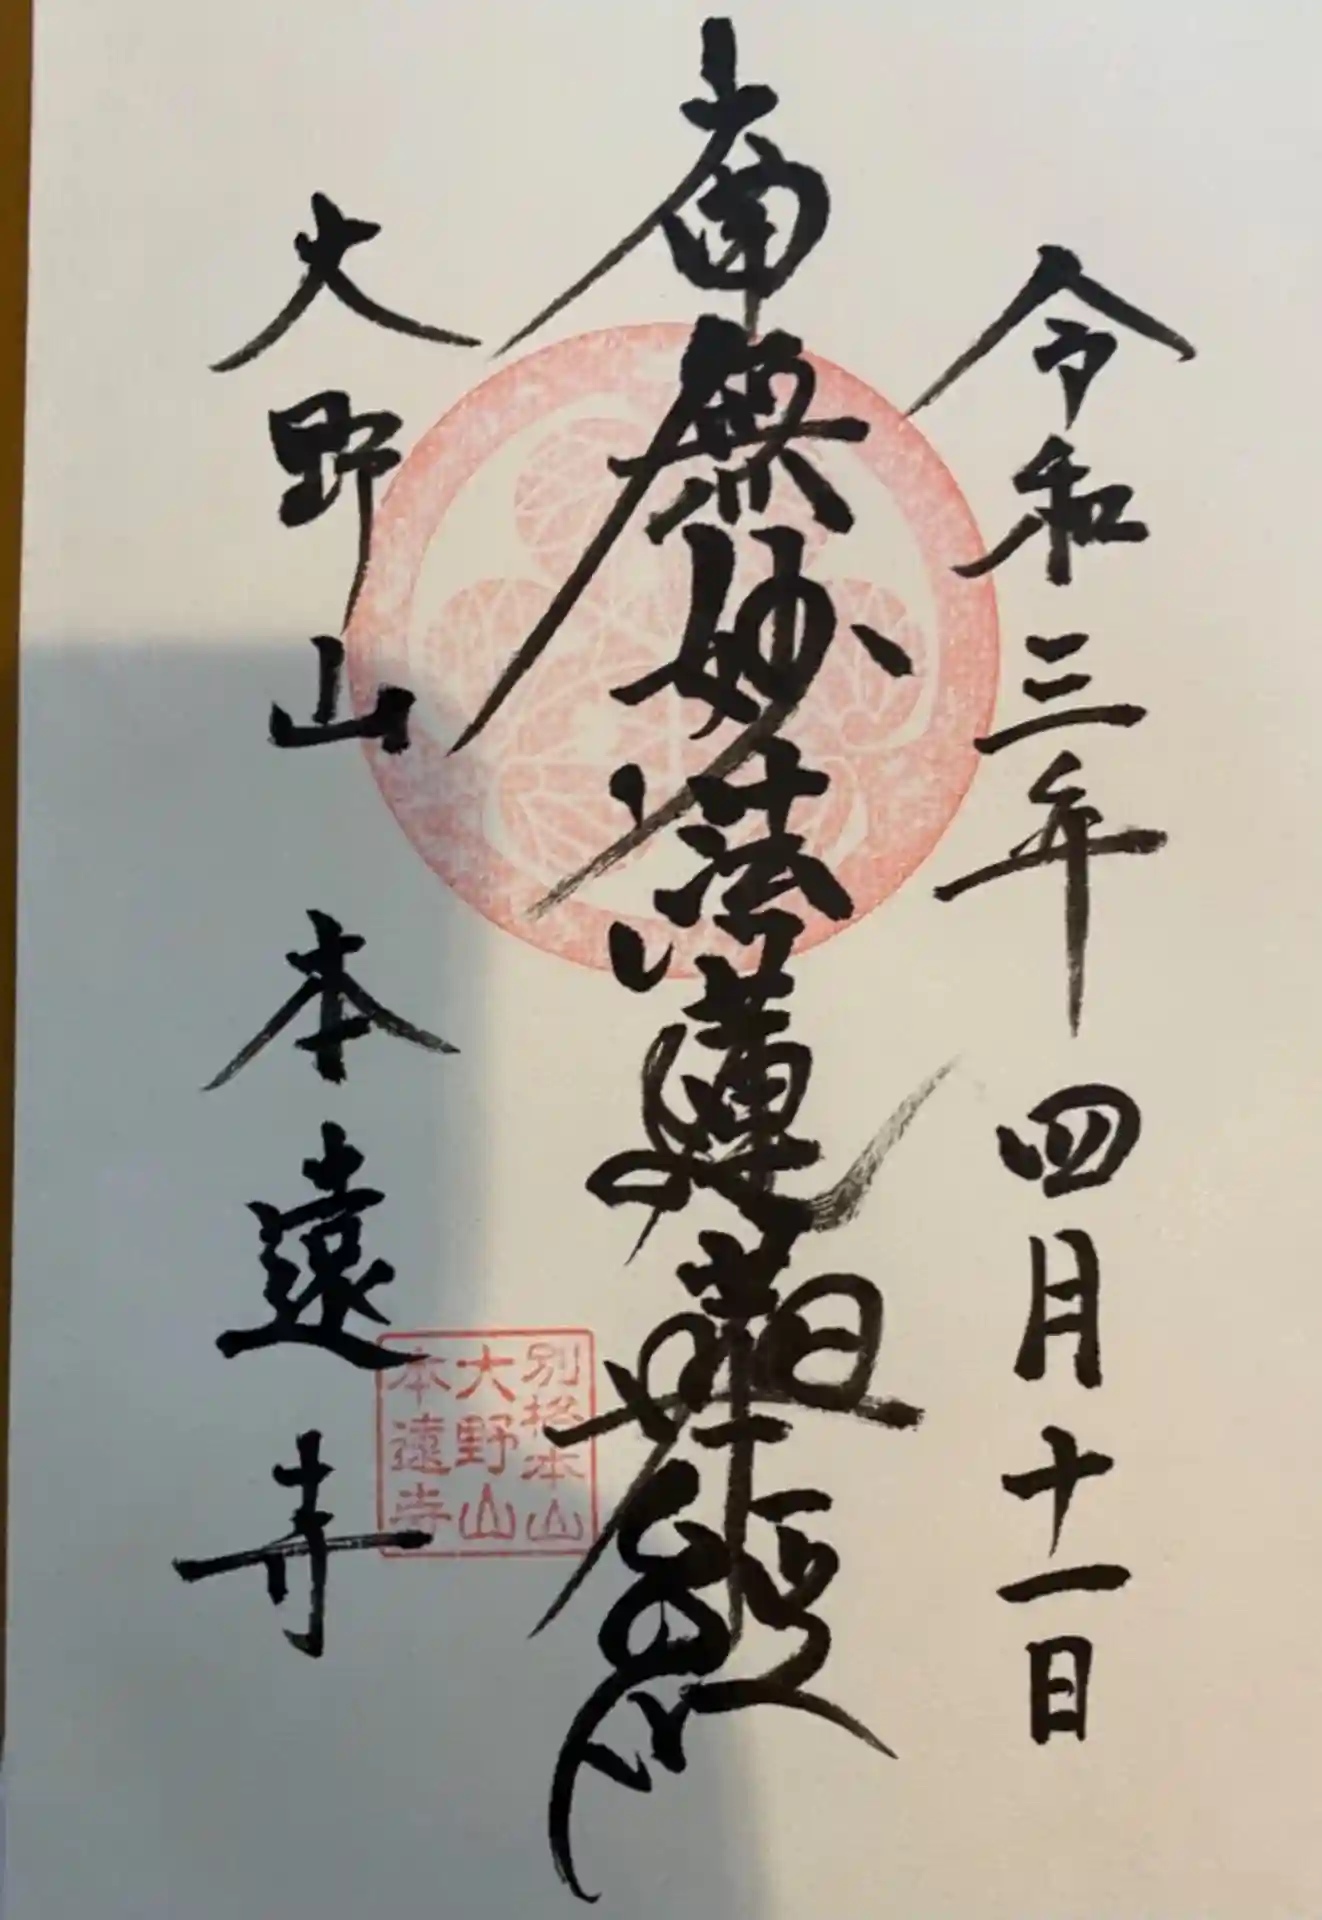 令和三年 四月十一日
南無妙法蓮華経
大野山 本遠寺
別格本山
大野山
本遠寺